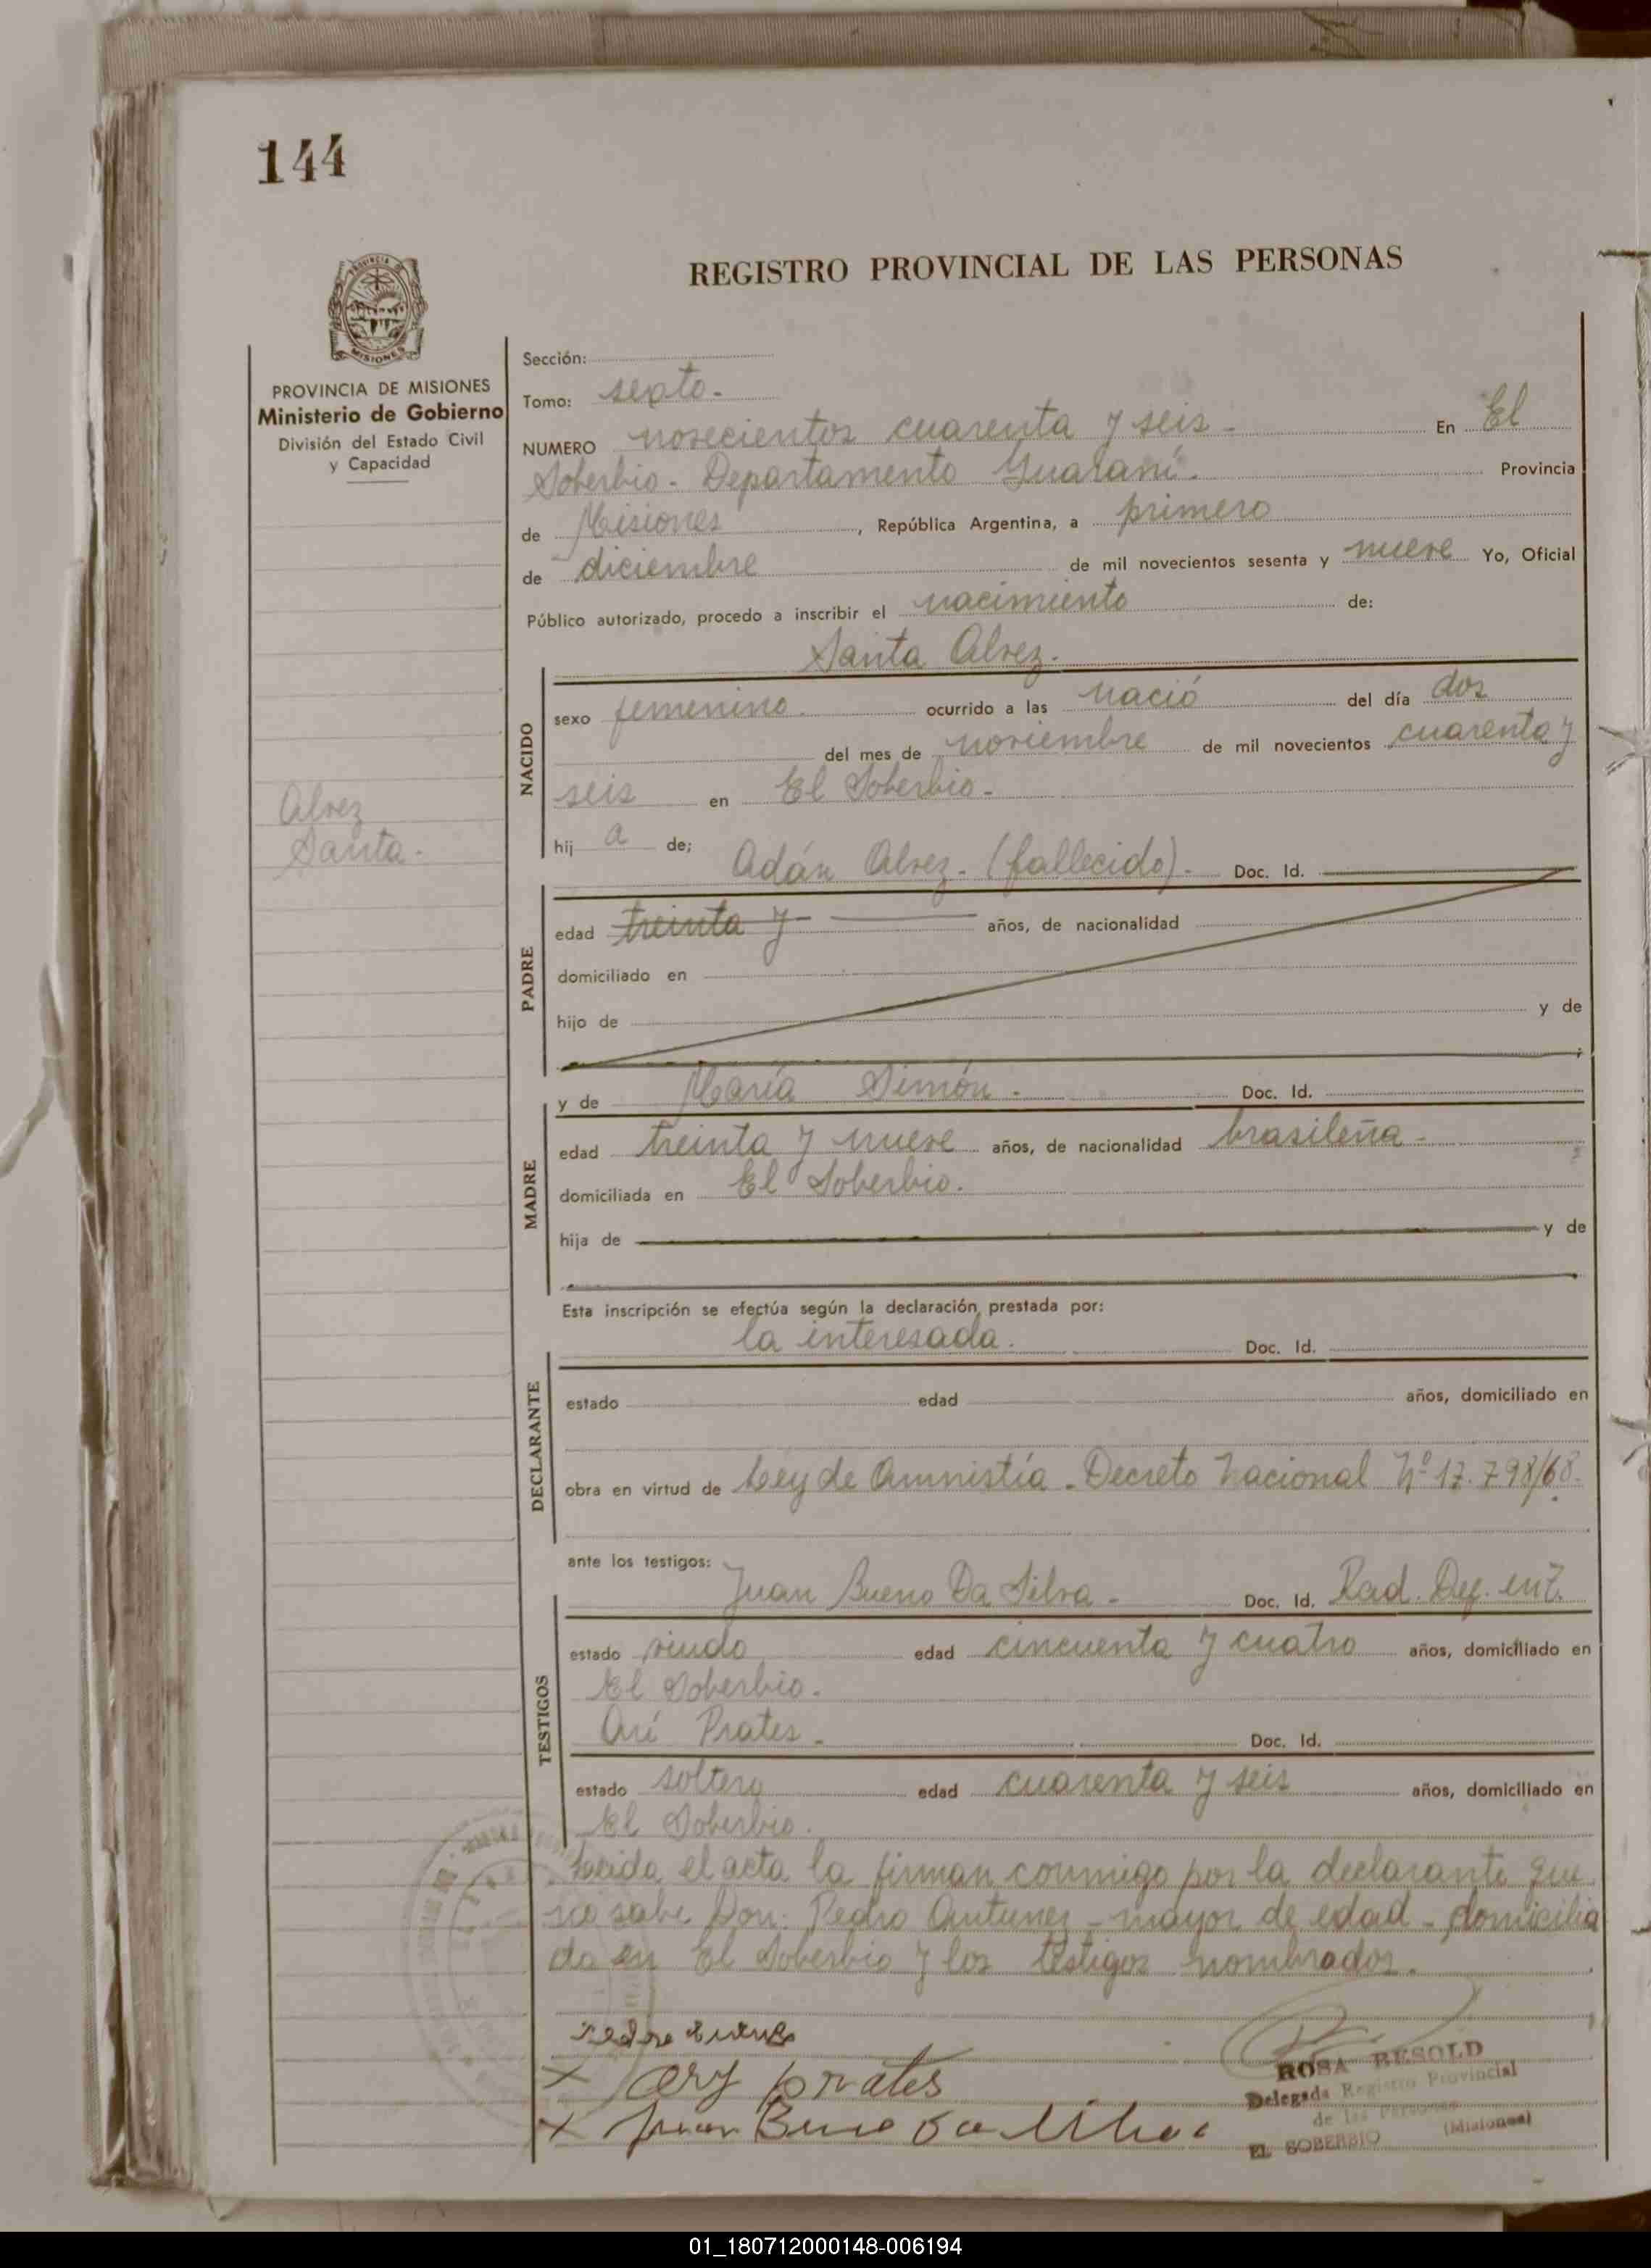 144
REGISTRO PROVINCIAL DE LAS PERSONAS
PROVINCIA DE
MISIONES
PROVINCIA DE MISIONES
Ministerio de Gobierno
División del Estado Civil
y Capacidad
Alvez
Santa.
Sección:
Tomo: sexto.
NUMERO novecientos cuarenta y seis - En El
Soberbio - Departamento Guaraní. Provincia
de Misiones, República Argentina, a primero
de diciembre de mil novecientos sesenta y nueve Yo, Oficial
Público autorizado, procedo a inscribir el nacimiento de:
Santa Alvez.
NACIDO
sexo femenino. ocurrido a las nació del día dos
del mes de noviembre de mil novecientos cuarenta y
seis en El Soberbio -
hij a de;
Adán Alvez - (fallecido). Doc. Id.
PADRE
edad treinta y años, de nacionalidad
domiciliado en
hijo de y de
;
MADRE
y de María Simón. Doc. Id.
edad treinta y nueve años, de nacionalidad brasileña -
domiciliada en El Soberbio.
hija de y de
Esta inscripción se efectúa según la declaración prestada por:
la interesada. Doc. Id.
DECLARANTE
estado edad años, domiciliado en
obra en virtud de Ley de Amnistía - Decreto Nacional Nº 17.798/68.
ante los testigos:
Juan Bueno Da Silva - Doc. Id. Rad.
TESTIGOS
estado viudo edad cincuenta y cuatro años, domiciliado en
El Soberbio.
Ari Prates - Doc. Id.
estado soltero edad cuarenta y seis años, domiciliado en
El Soberbio.
Leída el acta la firman conmigo por la declarante que
no sabe Don: Pedro Antunez - mayor de edad - domicilia
do en El Soberbio y los testigos nombrados.
x Ary prates
x Juan Bueno da Silva
ROSA BESOLD
Delegada Registro Provincial
de las Personas
EL SOBERBIO (Misiones)
01_180712000148-006194